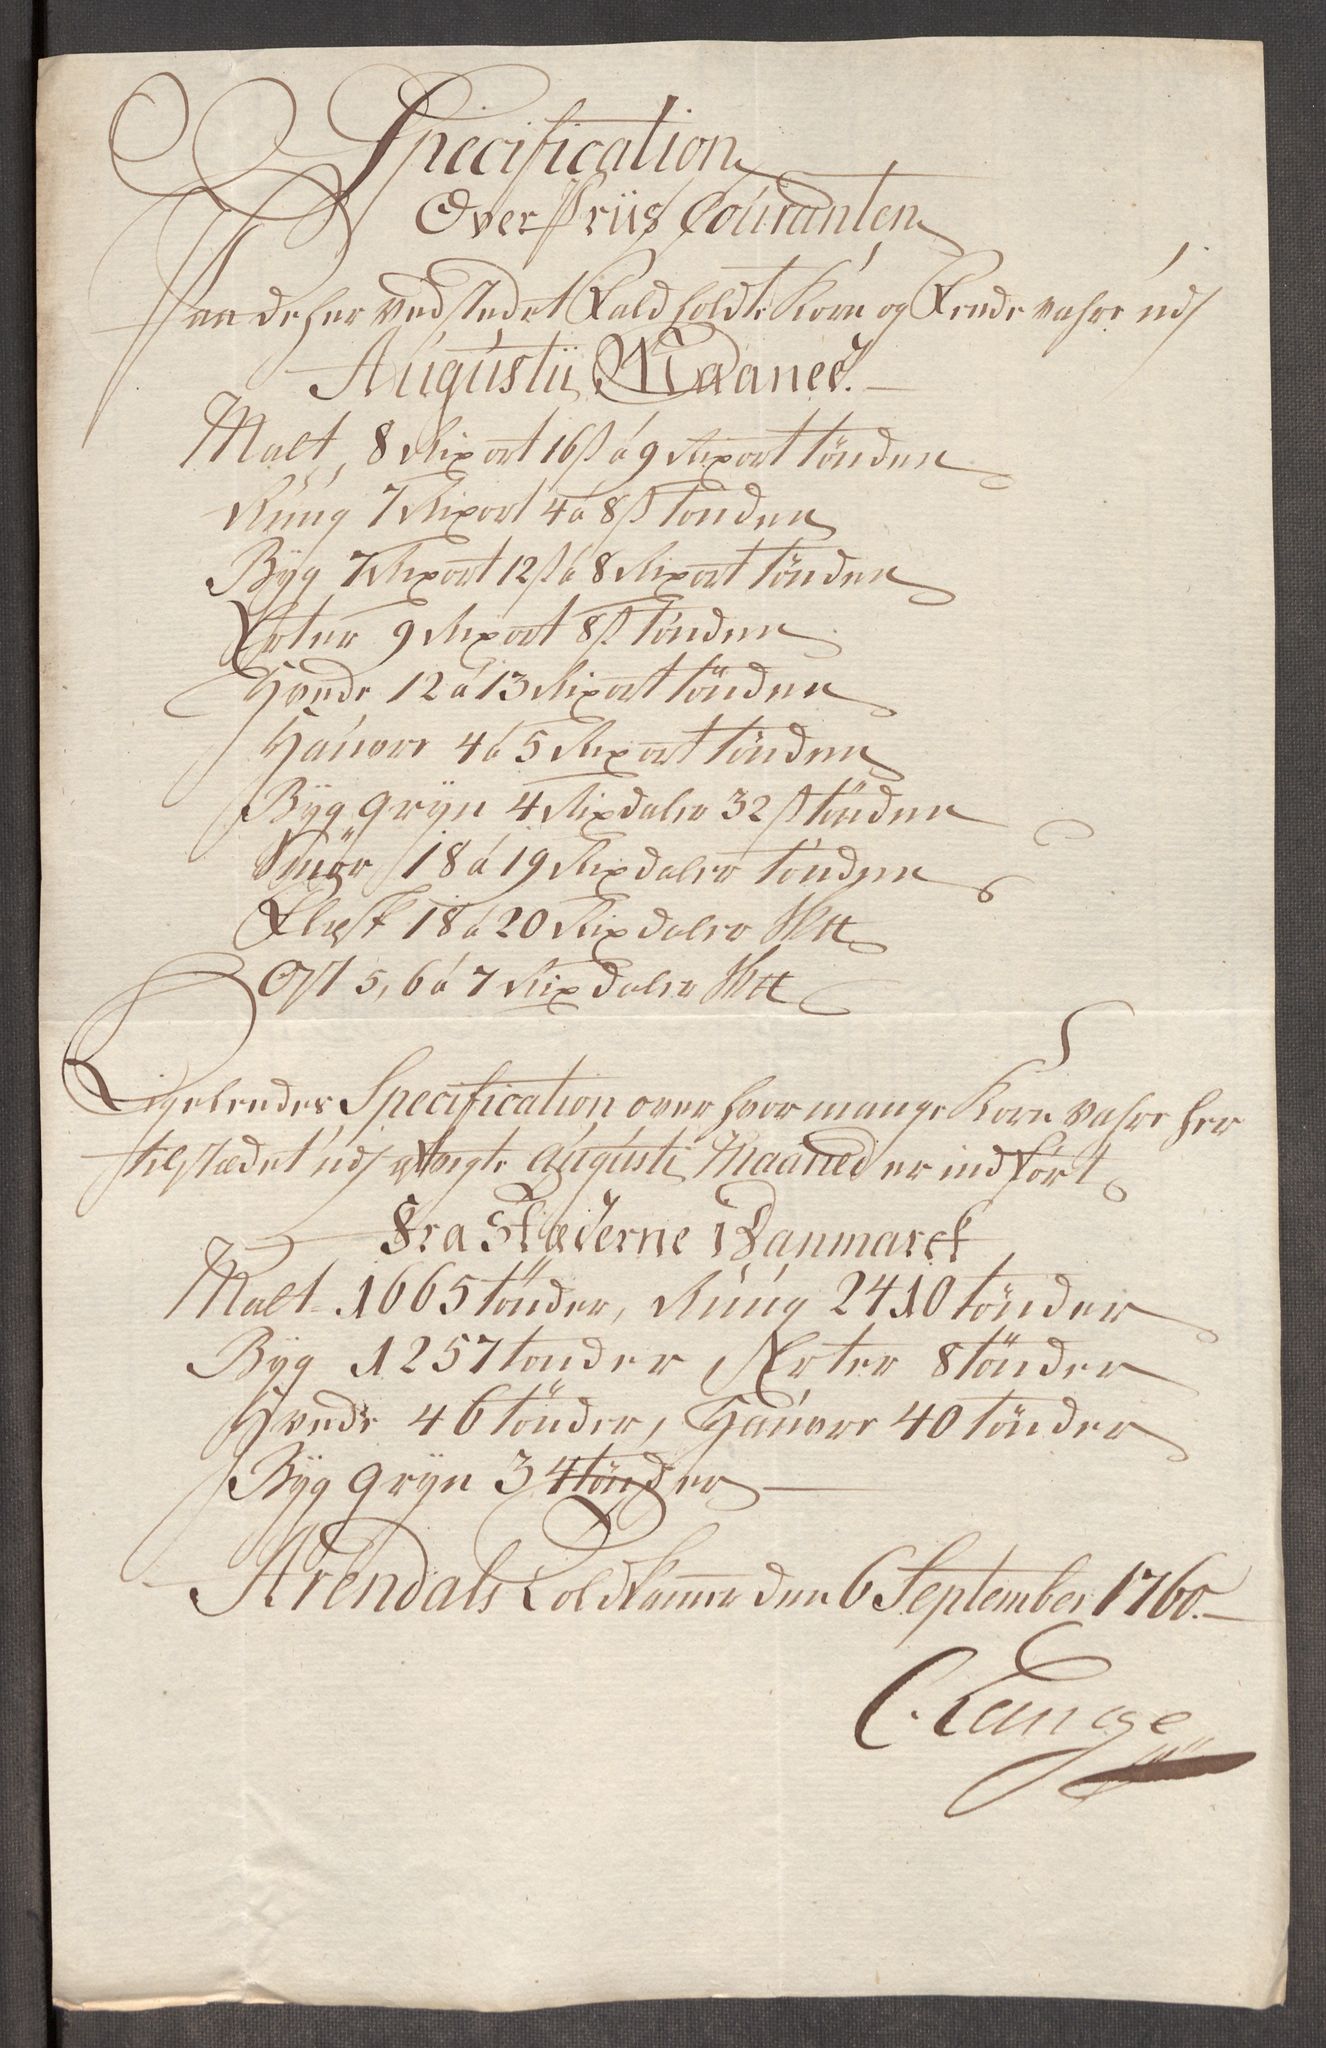 Specification
Over Priis Couranten
Paa de her ved stedet Fald holdte Korn og Feede vahre udj
Augustii Maaned.
Malt, 8 Rixort 16 s á 9 Rixort tönden
Rúug 7 Rixort 4 á 8 s tonden
Byg 7 Rixort 12 s á 8 Rixort tönden
Erter 9 Rixort 8 s tönden
Hvede 12 á 13 Rixort tönden
Haúvre 4 á 5 Rixort tönden
Byg gryn 4 Rixdalер 32 s tönden
Smör 18 á 19 Rixdaler tönden
Flesk 18 á 20 Rixdaler Skt
Ost 5, 6 á 7 Rixdaler Skt
Ligeleedes Specification over hvor mange Korn vahre her
til stædet udj Augusti Maaned er ind ført
Fra Stæderne i Danmarck
Malt 1665 tönder, Rúúg 2410 tönder
Byg 1257 tonder, Erter 8 tönder
Hvede 46 tönder, Haúvre 40 tönder
Byg gryn 34 tönder
Arendals Toldkammer den 6 September 1760.
C. Lange